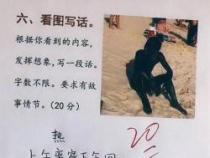 六、看图写话。
根据你看到的内容,
发挥想象,写一段话。
字数不限。要求有故
事情节。(20 分)
热
20
上午